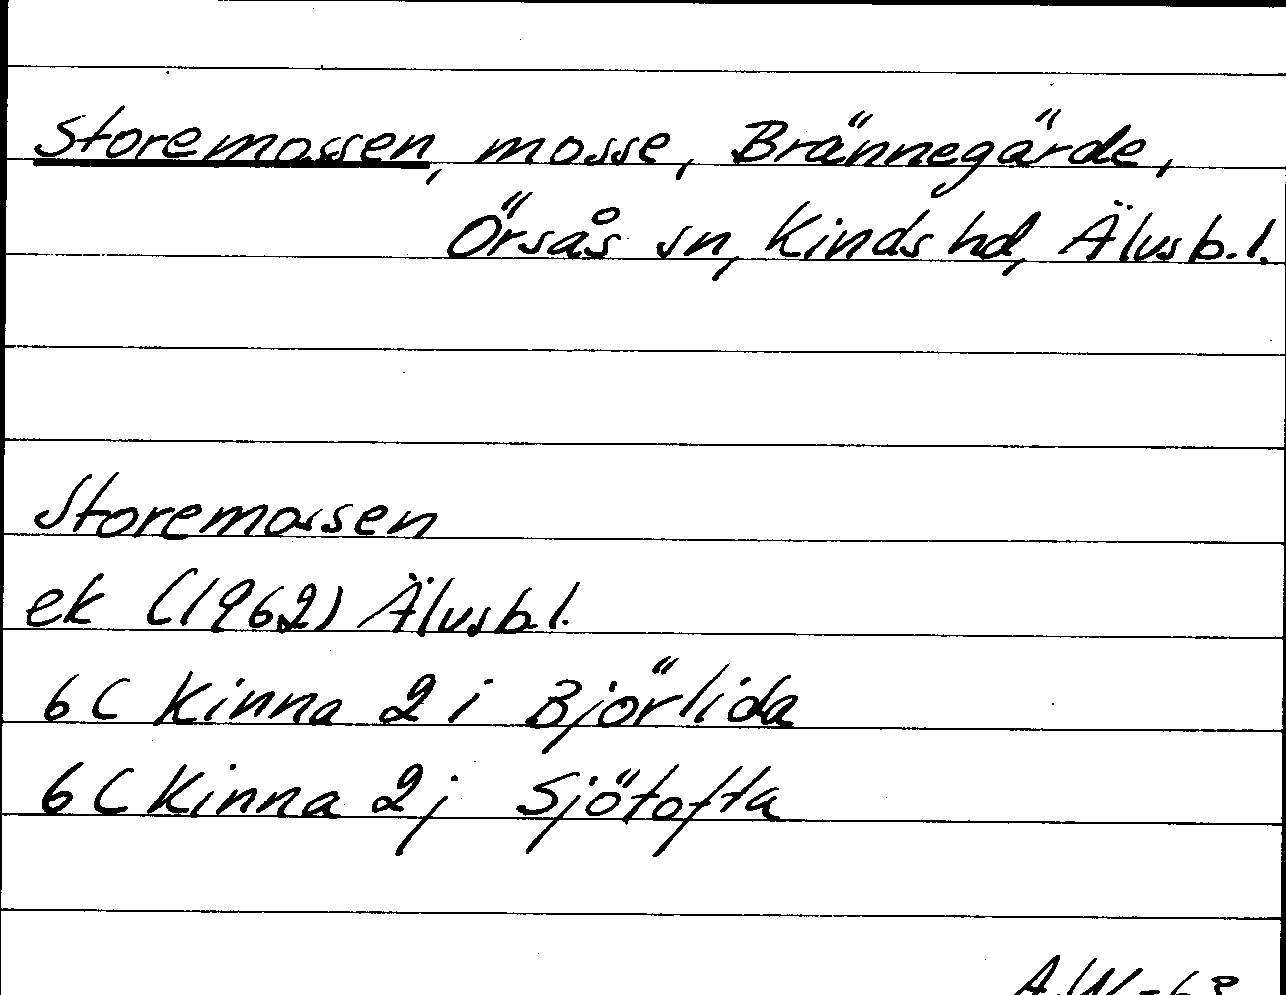 Storemossen, mosse, Brännegärde,
Örsås sn, Kinds hd, Älvsb.l.
Storemossen
ek (1962) Älvsb.l.
6C Kinna 2 i Björlida
6C Kinna 2j Sjötofta